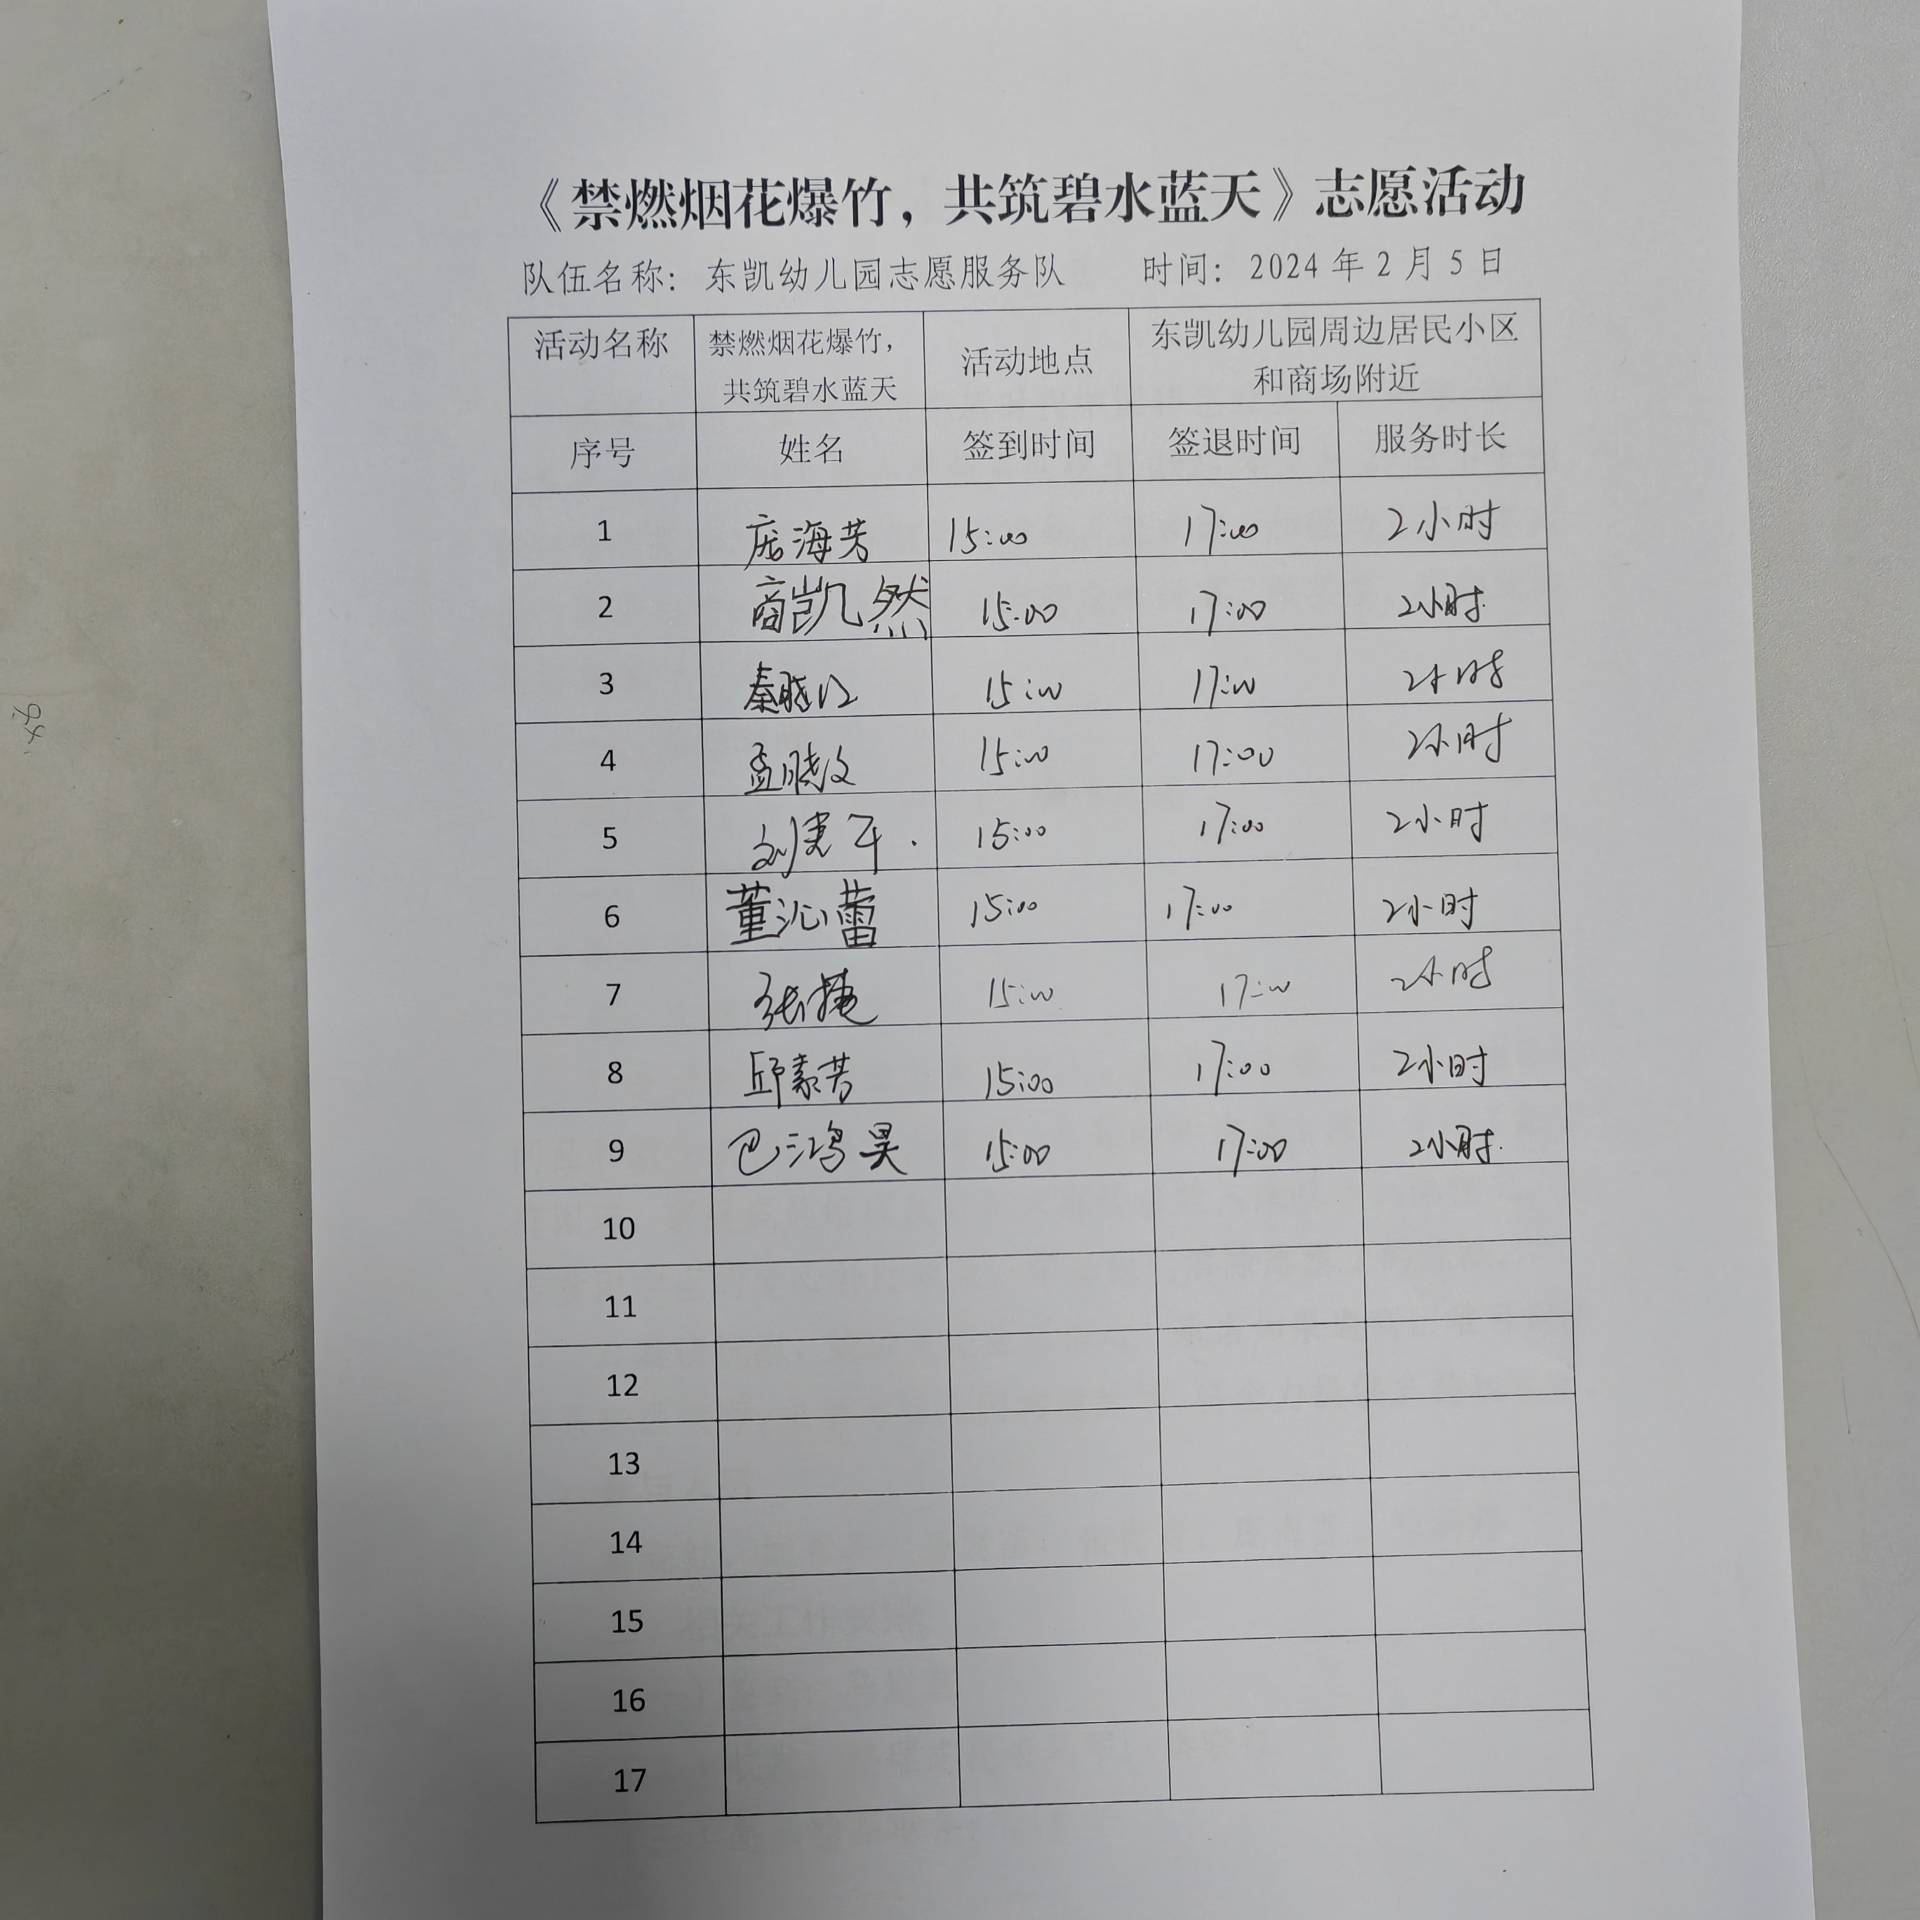 《禁燃烟花爆竹，共筑碧水蓝天》志愿活动
队伍名称：东凯幼儿园志愿服务队 时间：2024 年 2 月 5 日
活动名称 禁燃烟花爆竹， 共筑碧水蓝天 活动地点 东凯幼儿园周边居民小区 和商场附近
序号 姓名 签到时间 签退时间 服务时长
1 庞海芳 15:00 17:00 2小时
2 商凯然 15:00 17:00 2小时
3 秦晓 15:00 17:00 2小时
4 孟晓 15:00 17:00 2小时
5 刘 15:00 17:00 2小时
6 董沁蕾 15:00 17:00 2小时
7 张捷 15:00 17:00 2小时
8 邱素芳 15:00 17:00 2小时
9 巴鸿昊 15:00 17:00 2小时
10
11
12
13
14
15
16
17